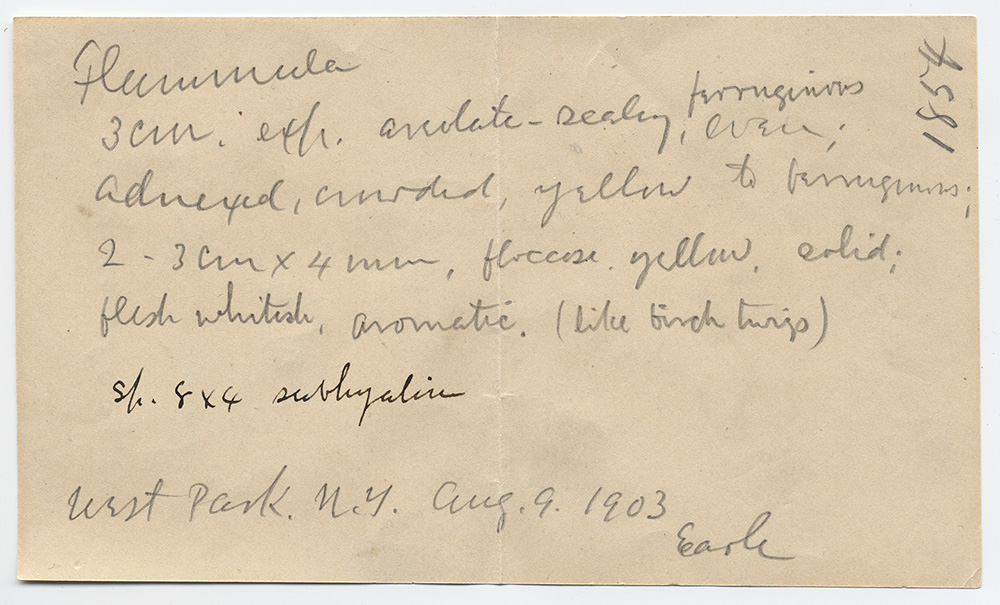 Flammula
1854
3 cm. exp. areolate-scaly, ferruginous even;
adnexed, crowded, yellow to ferruginous;
2 - 3 cm x 4 mm, floccose. yellow. solid;
flesh whitish, aromatic. (like birch twigs)
sp. 8 x 4 subhyalin
West Park. N.Y. Aug. 9. 1903
Earle